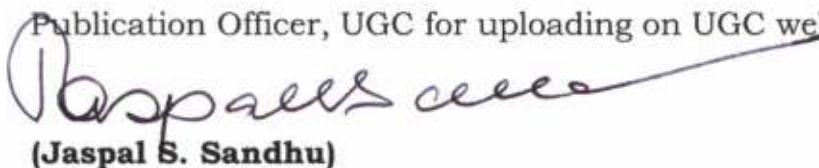 Publication Officer, UGC for uploading on UGC we
(Jaspal S. Sandhu)